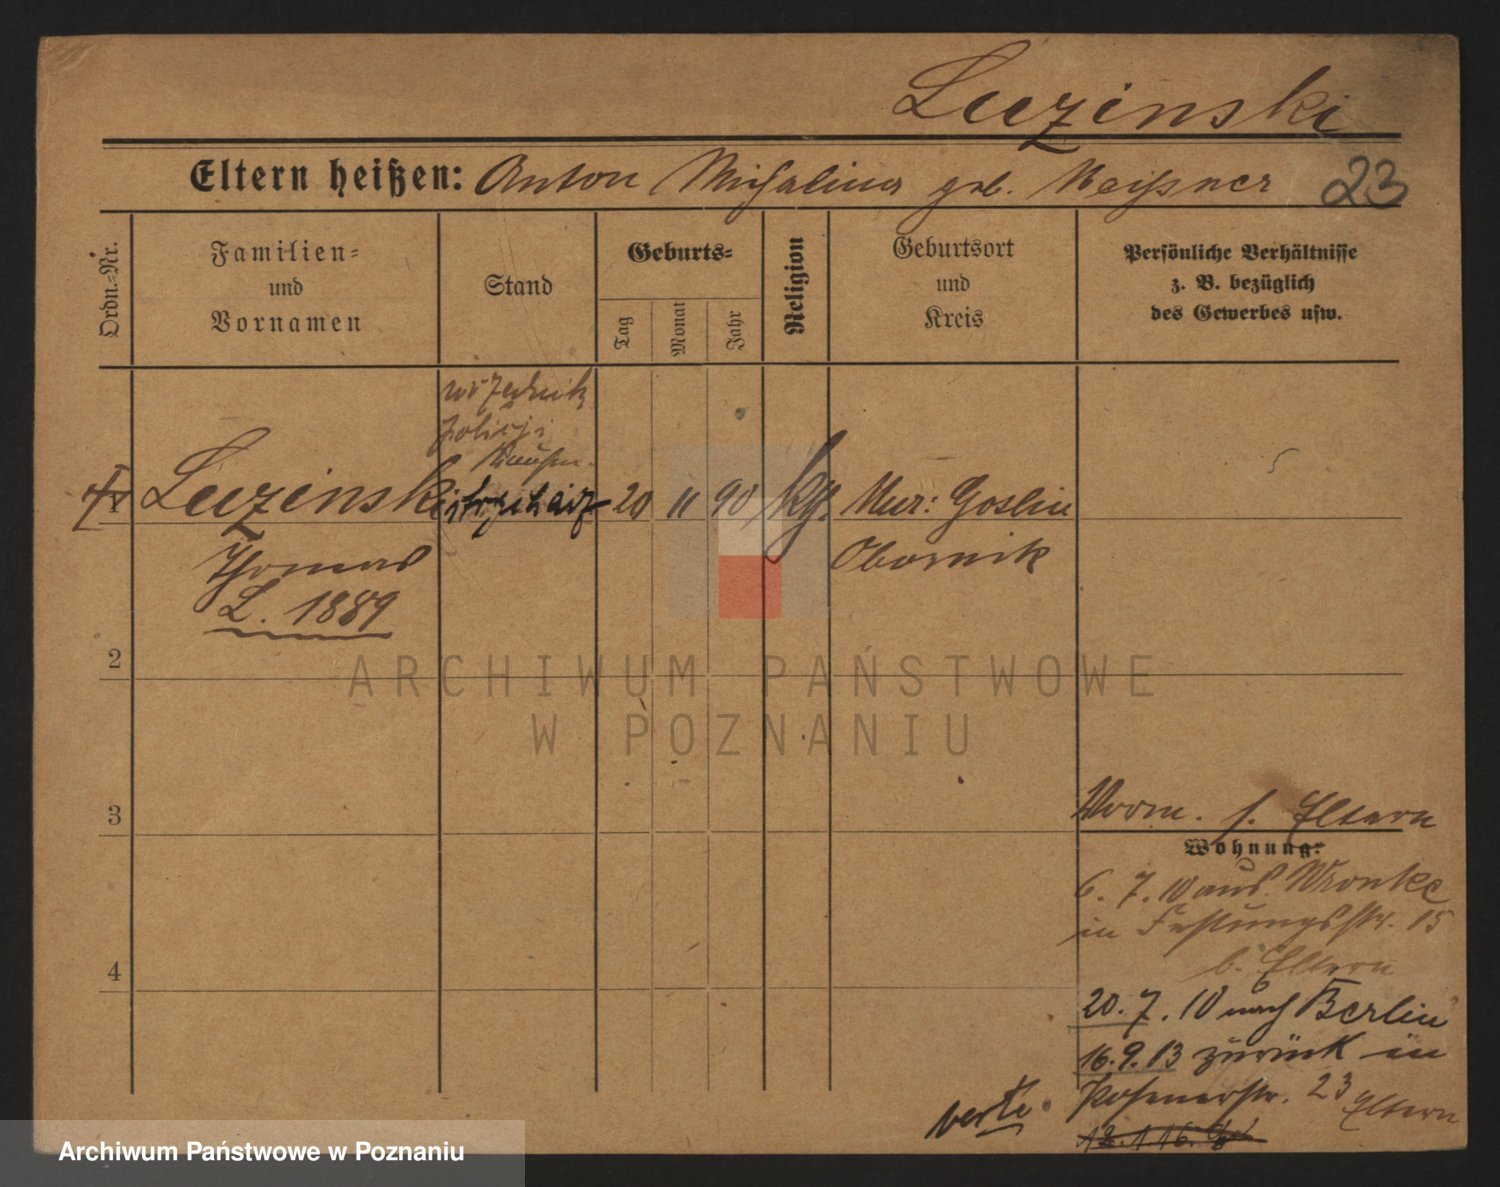 Luzinski
Eltern heißen: Anton Michalina geb. Meißner 23
Ordn.=Nr.
Familien=
und
Vornamen
Stand
Geburts=
Tag
Monat
Jahr
Religion
Geburtsort
und
Kreis
Persönliche Verhältnisse
z. B. bezüglich
des Gewerbes usw.
policji
Kaufm.
Luzinski 20 11 90 kath. Mur: Goslin
Thomas Obornik
L. 1889
2
ARCHIWUM PAŃSTWOWE
W POZNANIU
3
Vorm. s. Eltern
Wohnung:
6. 7. 10 aus Wronke
in Festungsstr. 15
b. Eltern
4
20. 7. 10 nach Berlin
16. 9. 13 zurück in
Posenerstr. 23 Eltern
verte
Archiwum Państwowe w Poznaniu